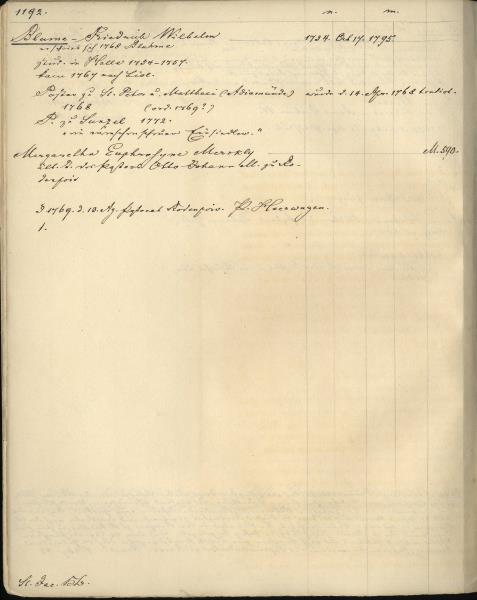 1192. n. m.
Blume - Friedrich Wilhelm 1734. Oct 17. 1795.
sich 1768 Bluhme
stud. in Halle 1754-1757.
kam 1767 nach Livl.
Pastor zu St. Peter u. Matthaei (Adiamünde) wurde d. 14. Apr. 1768
1768 (ord. 1769?)
P. zu Sunzel 1772.
ein Einsiedler."
Margaretha Euphrosyne Merckly M. 590.
T. des Pastors Otto Johann M. zu Ro-
denpois
1769. d. 13. Ag. Pastorat Rodenpois. P. Heerwagen.
1.
St. Jac. Kb.